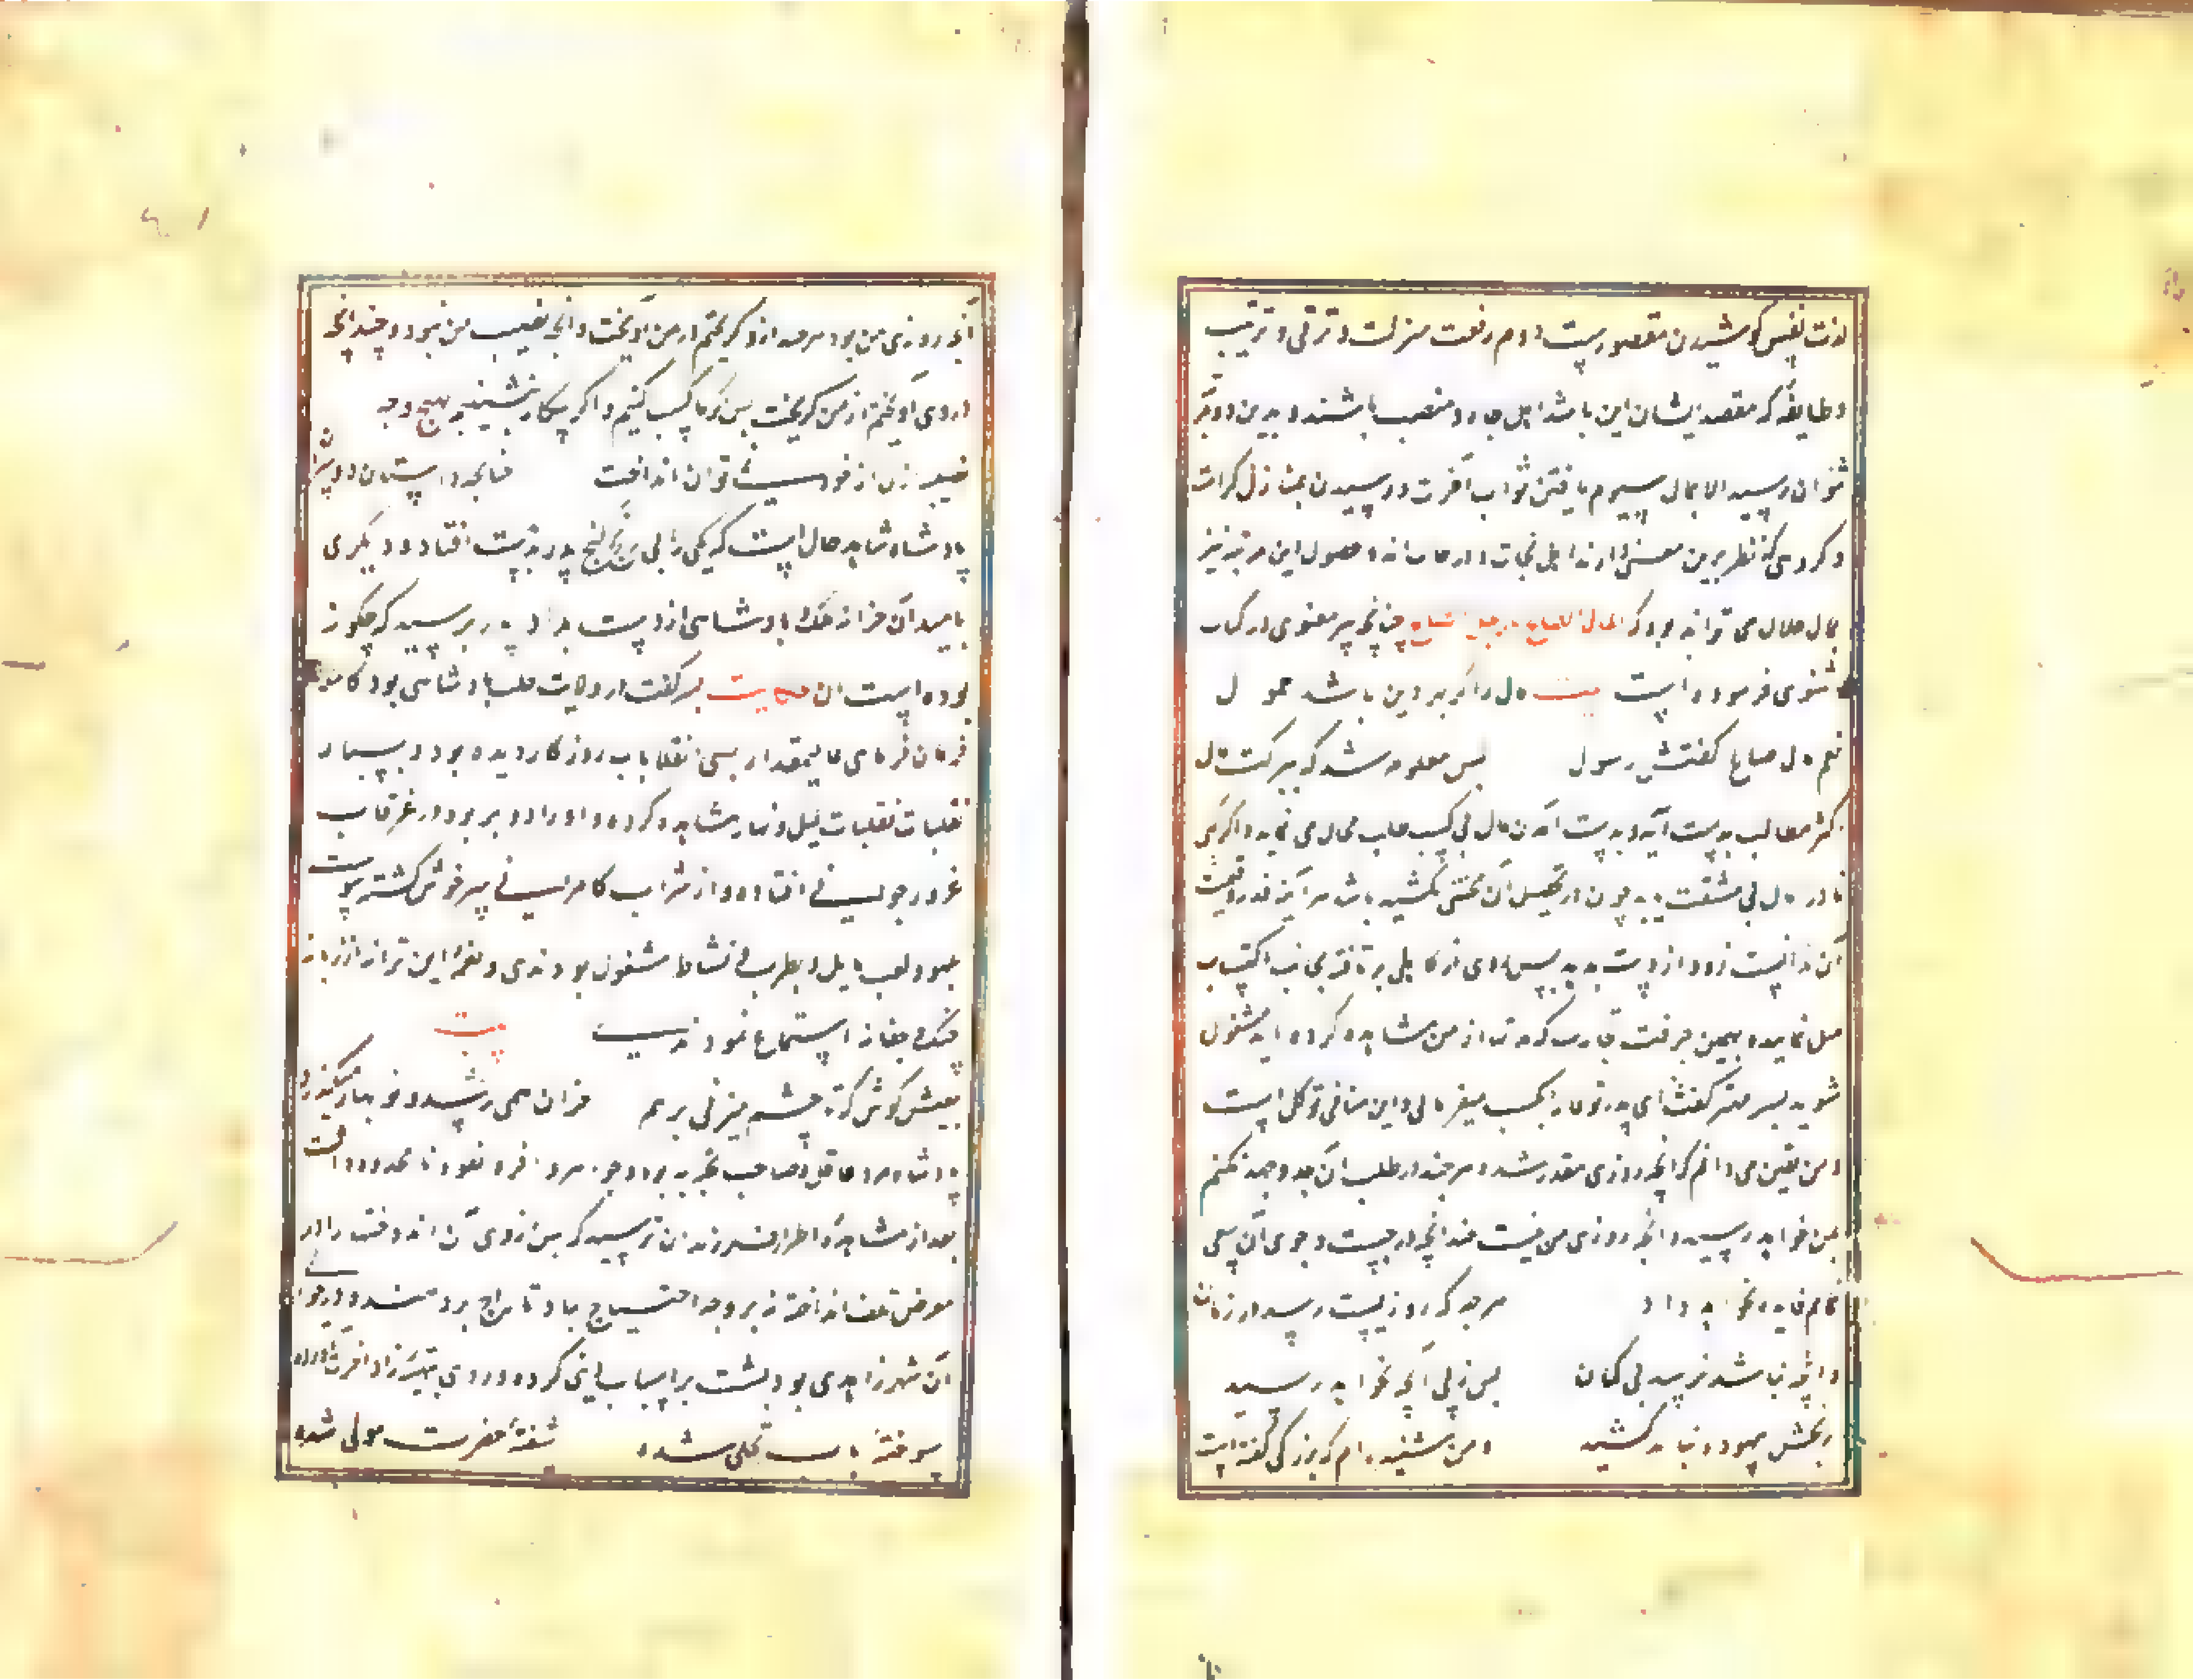 لذت نفس کوشیدن مقصورست دوم رفعت منزلت و ترقی و ترتیب
و طایفهٔ که مقصد ایشان این باشد اهل جاه و منصب باشند و بدین دو مرتبه
نتوان رسید الا بمال سیوم یافتن ثواب آخرت و رسیدن بمنازل کرامت
و کروهی که نظر برین معنی دارند اهل نجات و درجات اند و حصول این مرتبه نیز
بمال حلال می تواند بود که نعم المال الصالح للرجل الصالح چنانچه پیر معنوی در کتاب
مثنوی فرموده است بیت مال را کر بهر دین باشی حمول
نعم مال صالح کفتش رسول پس معلوم شد که ببرکت مال
اکثر مطالب بدست آید و بدست آمدن مال بی کسب و طلب محال می نماید و اکر کسی
نادر مال بی مشقت یابد چون در تحصیل آن محنتی نکشیده باشد هراینه قدر و قیمت
آن ندانست زود از دست بدهد پس روی از کاهلی برتافته بجانب اکتساب
میل نمایید و بهمین حرفت تجارت که مدتها از من مشاهده کرده اید مشغول
شوید پسر مهتر کفت ای پدر تو ما را بکسب میفرمایی و این منافی توکل است
و من یقین می دانم که انچه روزی مقدر شده هر چند در طلب آن جد و جهد نکنم
بمن خواهد رسید و انچه روزی من نیست چندانچه در جست و جوی آن سعی
نمایم فایده نخواهد داد هر چه که روزیست رسد در زمان
و انچه نباشد نرسد بی کمان پس ز پی آنچه نخواهد رسید
رنجش بیهوده نباید کشید و من شنیده ام که بزرکی کفته است
آنچه روزی من بود هر چند ازو کریختم در من آویخت و آنچه نصیب من نبود چندانچه
در وی آویختم از من کریخت پس کر ما کسب کنیم و اکر بیکار نشینیم بهیچ وجه
نصیب ازل از خود نمیتوان انداخت چنانچه داستان دو پسران
پادشاه شاهد حال است که یکی را بی رنج کنج پدر بدست افتاد و دیکری
بامید آن خزانه ملک پادشاهی از دست بداد پدر پرسید که چکونه
بوده است آن حکایت پسر کفت در ولایت حلب پادشاهی بود کامران
فرمان فرمای عالیمقدار بسی انقلابات روزکار دیده بود و بسیار
تقلبات لیل و نهار مشاهده کرده و او را دو پسر بود در غرقاب
غرور جوانی افتاده و از شراب کامرانی سرخوش کشته پیوسته
بلهو و لعب مایل و بطرب و نشاط مشغول بودندی و نغمهٔ این ترانه از زبان
چنک و چغانه استماع نمودندی بیت
بعیش کوش که تا چشم میزنی بر هم خزان همی رسد و نوبهار میکذرد
پادشاه مرد عاقل و صاحب تجربه بود و جواهر وافر و نقود نامحدود داشت
بعد از مشاهدهٔ اطوار فرزندان ترسید که پس از وی آن اندوخته را در
معرض تلف انداخته نه بر وجه احتیاج بباد تاراج بر دهند و در حوالی
آن شهر زاهدی بود پشت بر اسباب دنیا کرده و روی بتهیه زاد آخرت آورده
سوختهٔ تاب تجلی شده شیفتهٔ حضرت مولی شده